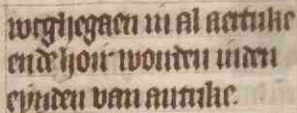 weghegaen in al aertrike
ende hoir wonden inden
eynden van aertrike.